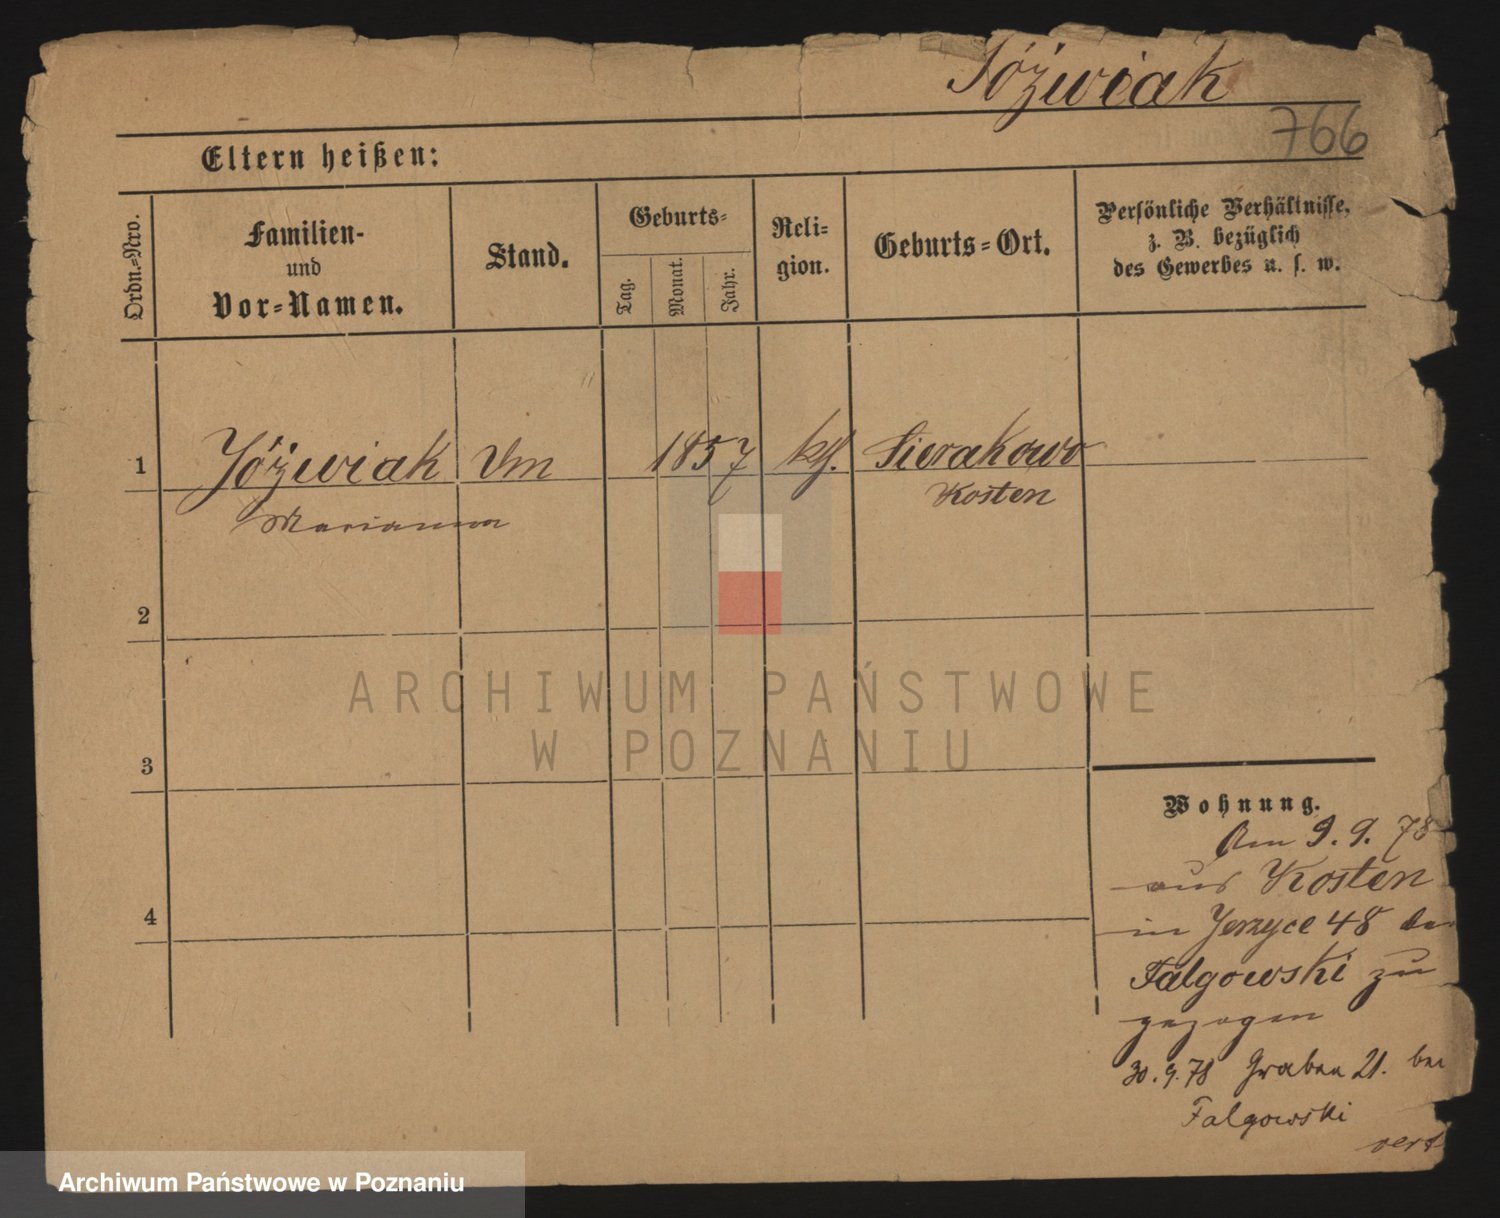 Jóźwiak
766
Eltern heißen:
Ordn.=Nro.
Familien-
und
Vor=Namen.
Stand.
Geburts=
Tag.
Monat.
Jahr.
Reli=
gion.
Geburts=Ort.
Persönliche Verhältnisse,
z. B. bezüglich
des Gewerbes u. s. w.
1 Jóźwiak 1857 Sierakowo
Marianna Kosten
2
3
4
Wohnung.
Am 9. 9. 78
aus Kosten
in Jerzyce 48 bei
Falgowski zu
gezogen
30. 9. 78 Graben 21. bei
Falgowski
vert
ARCHIWUM PAŃSTWOWE
W POZNANIU
Archiwum Państwowe w Poznaniu